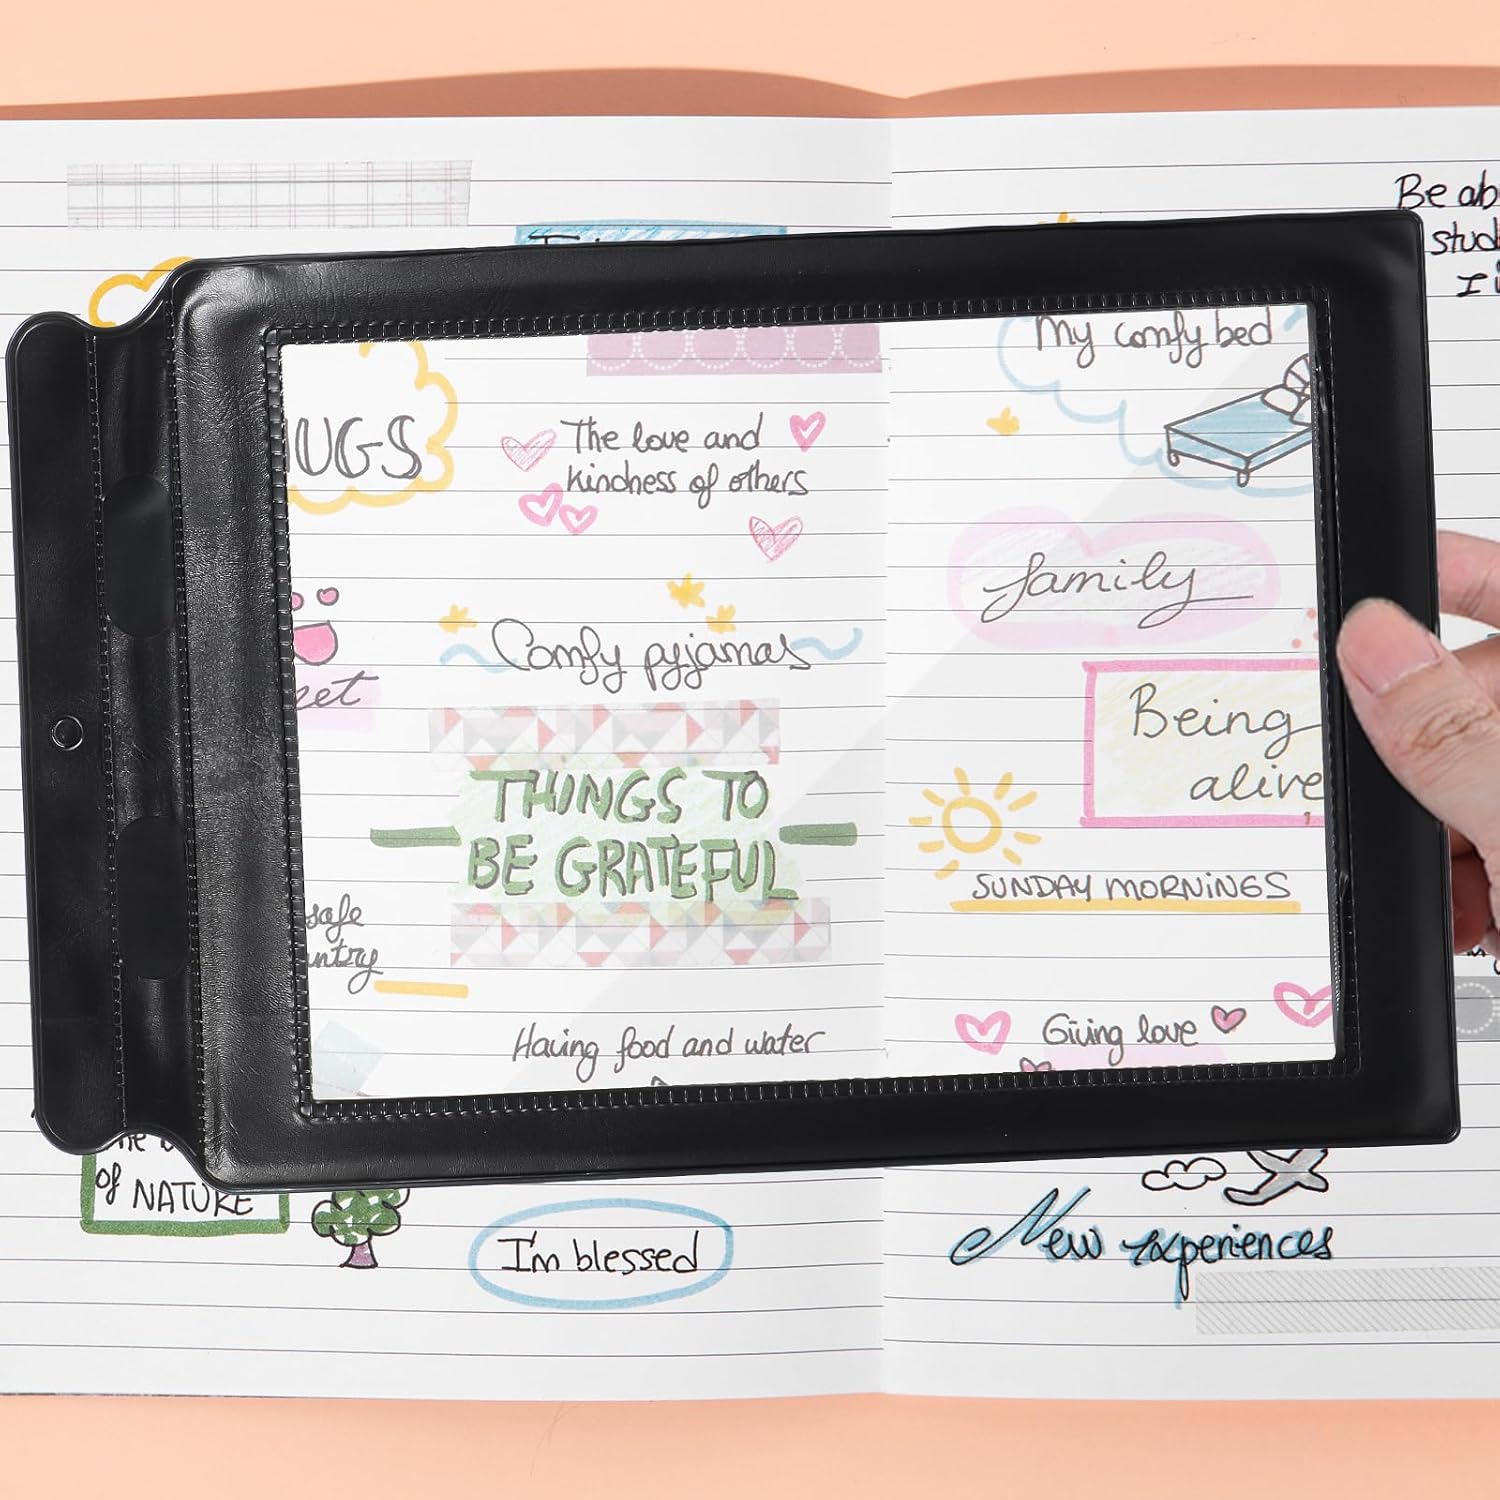 Be
I
My comfy bed
The love and
kindness of others
family
Comfy pyjamas
Being
alive
THINGS TO
BE GRATEFUL
SUNDAY MORNINGS
safe
Giving love
Having food and water
of NATURE
I'm blessed
New experiences